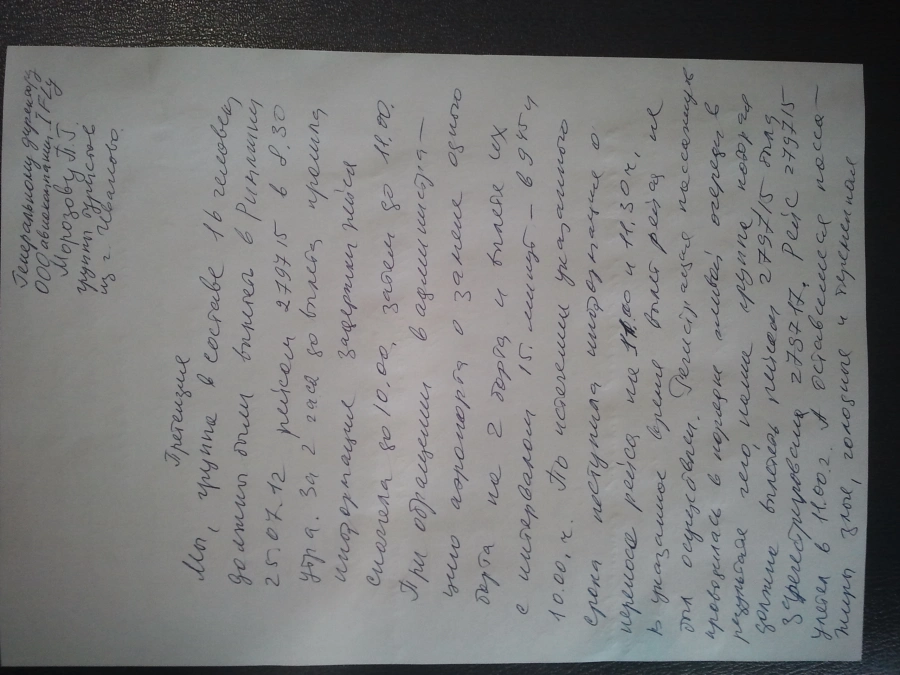 Генеральному директору
ООО авиакомпании IFly
Морозову П.Г.
группы туристов
из г. Иваново.
Претензия
Мы, группа в составе 16 человек
должны были вылететь в Римини
25.07.12 рейсом 279715 в 8.30
утра. За 2 часа до вылета прошла
информация задержки рейса
сначала до 10.00, затем до 11.00.
При обращении в администра-
цию аэропорта о замене одного
борта на 2 борта и вылете их
с интервалом 15 минут – в 9.45 и
10.00.ч. По истечении указанного
срока поступила информация о
переносе рейса на 11.00 и 11.30 ч,
в указанное время вылет рейса не
был осуществлен. Регистрация пассажиров
проводилась в порядке живой очереди в
результате чего наша группа которая
должна вылететь рейсом 279715 была
зарегестрирована 279717. Рейс 279715
улетел в 11.00.г. А оставшиеся пасса-
жиры злые, голодные и